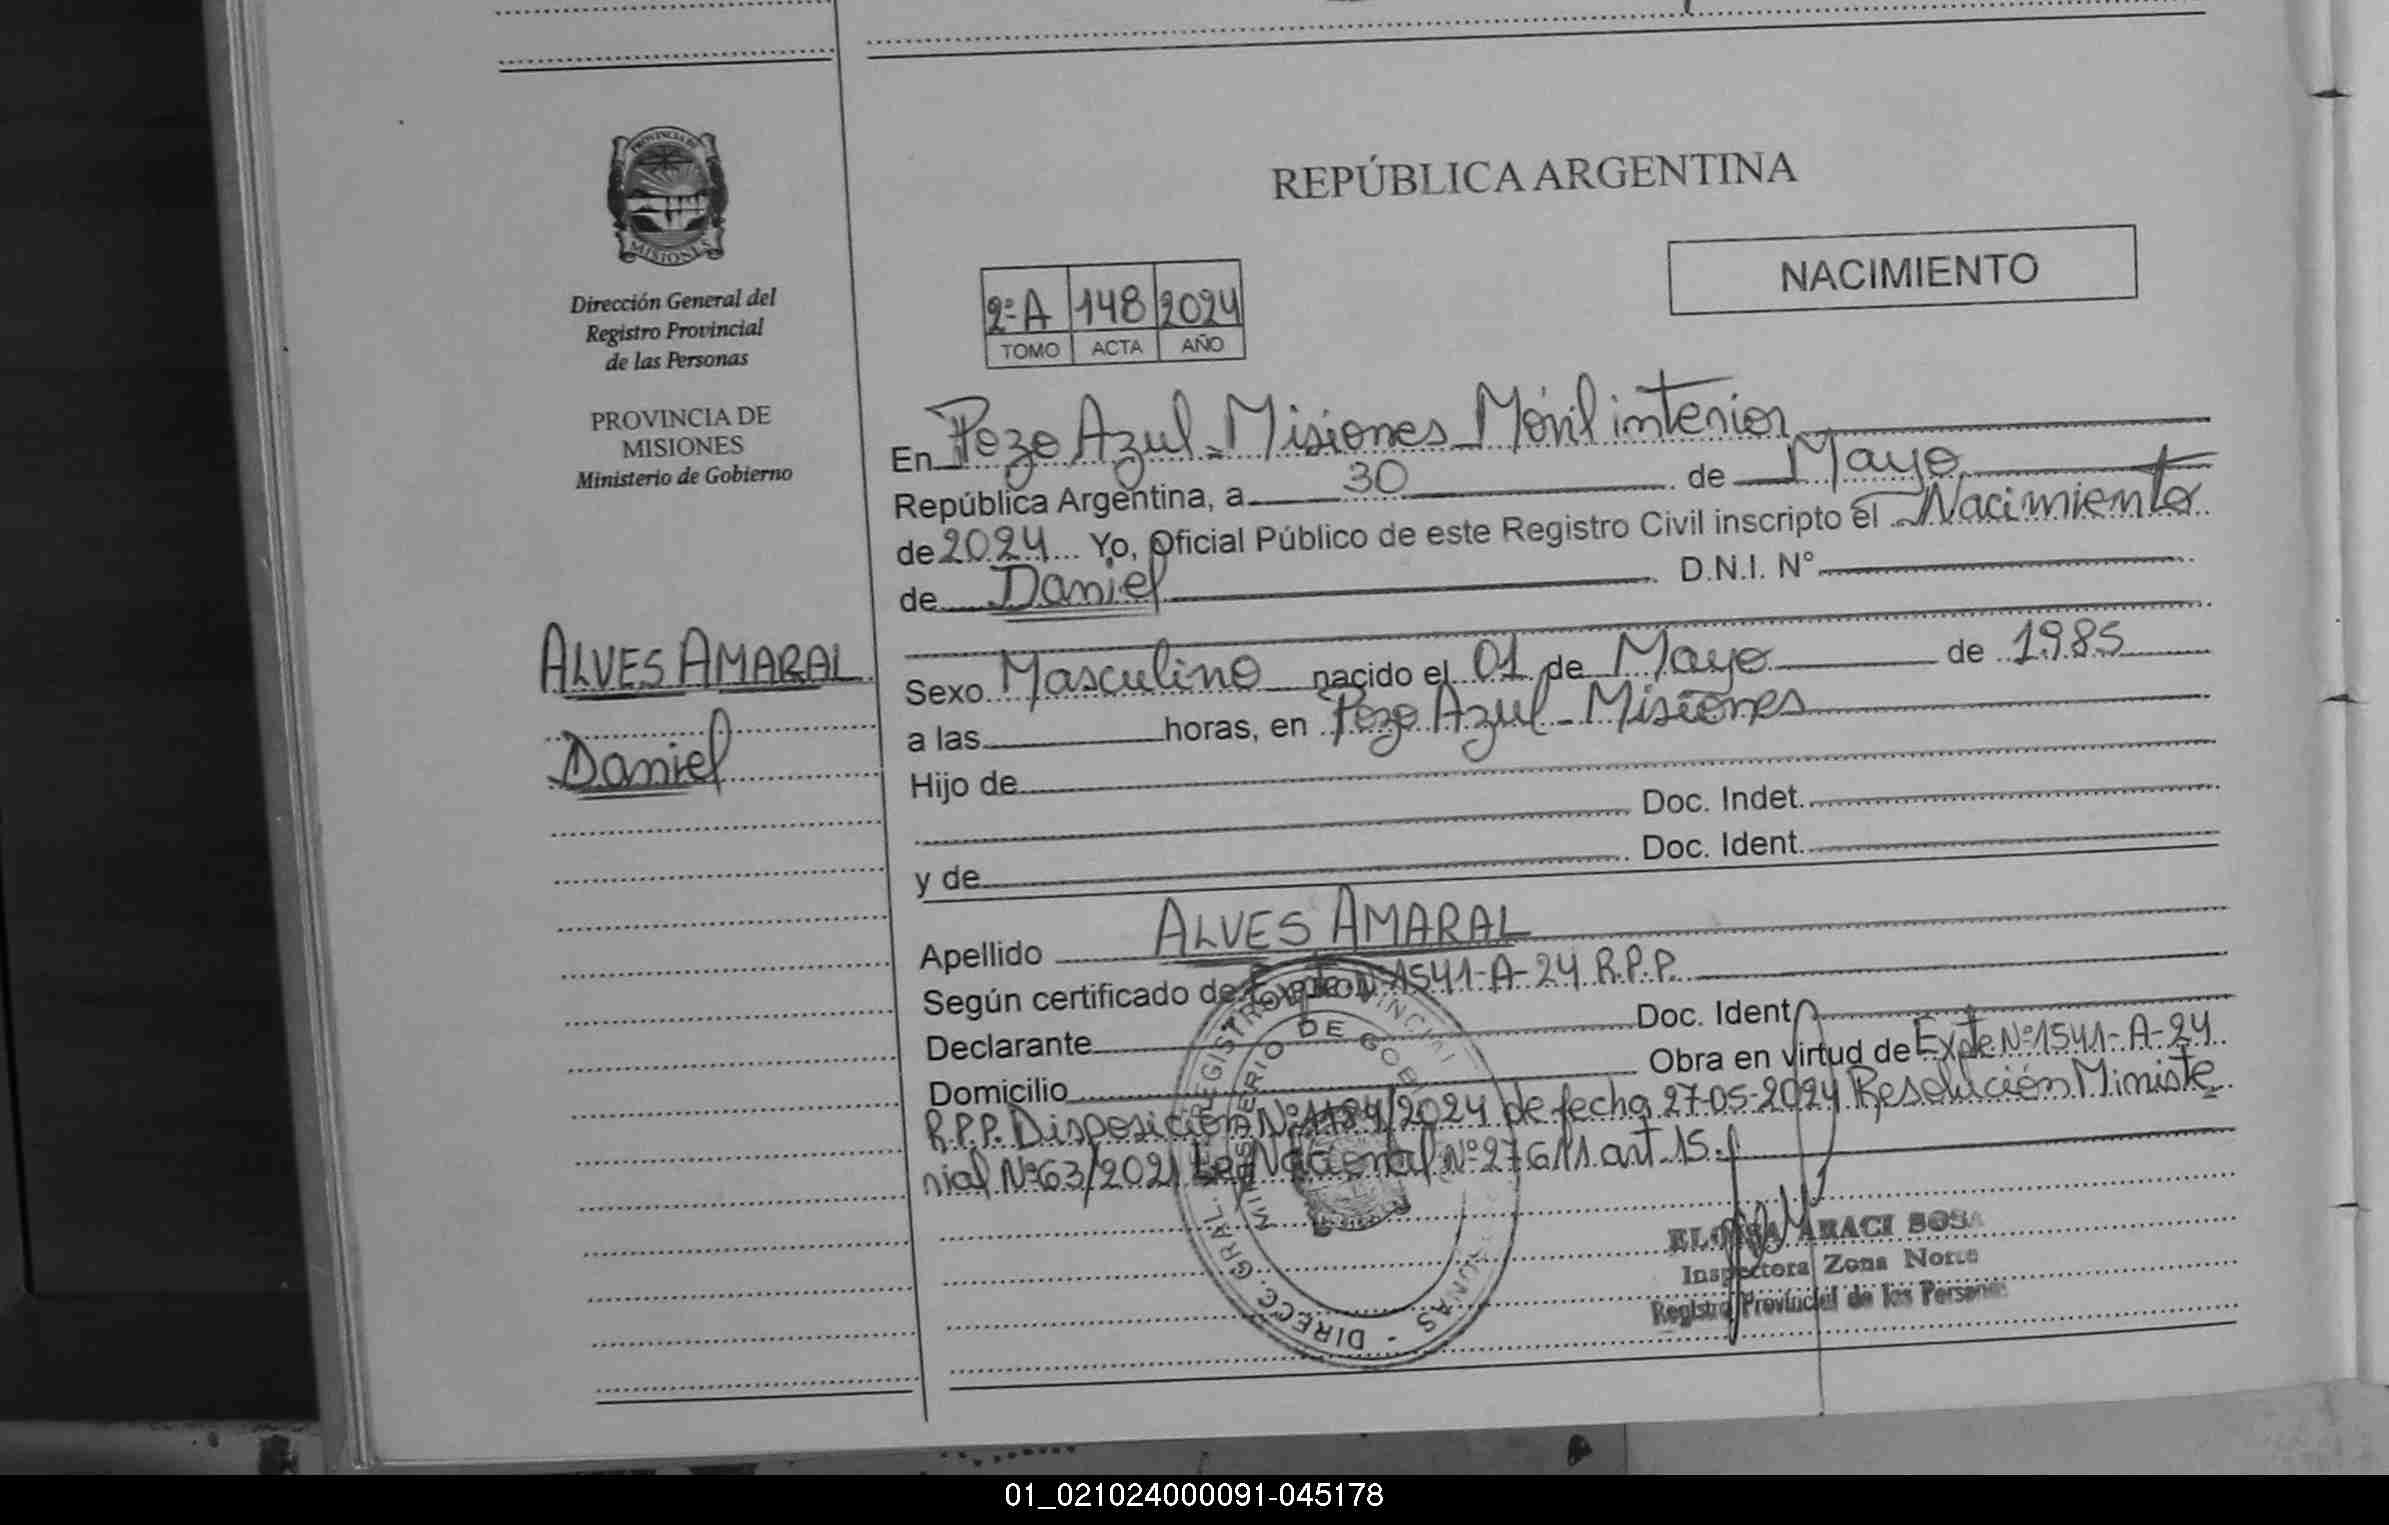 PROVINCIA DE
MISIONES
Dirección General del
Registro Provincial
de las Personas
PROVINCIA DE
MISIONES
Ministerio de Gobierno
ALVES AMARAL
Daniel
REPÚBLICA ARGENTINA
NACIMIENTO
2º A 148 2024
TOMO ACTA AÑO
En Pozo Azul - Misiones Móvil interior
República Argentina, a 30 de Mayo
de 2024 Yo, Oficial Público de este Registro Civil inscripto el Nacimiento
de Daniel D.N.I. N°
Sexo Masculino nacido el 01 de Mayo de 1985
a las horas, en Pozo Azul - Misiones
Hijo de
Doc. Indet.
y de Doc. Ident.
Apellido ALVES AMARAL
Según certificado de Expte Nº 1541-A-24 R.P.P.
Declarante Doc. Ident
Domicilio Obra en virtud de Expte Nº 1541-A-24
R.P.P. Disposición Nº 1184/2024 de fecha 27-05-2024 Resolución Ministe
rial Nº 63/2021 Ley Nacional Nº 27611 art. 15.
DIRECC. GRAL. REGISTRO PROVINCIAL PERSONAS -
MINISTERIO DE GOB
ELOISA ARACI SOSA
Inspectora Zona Norte
Registro Provincial de las Personas
01_021024000091-045178